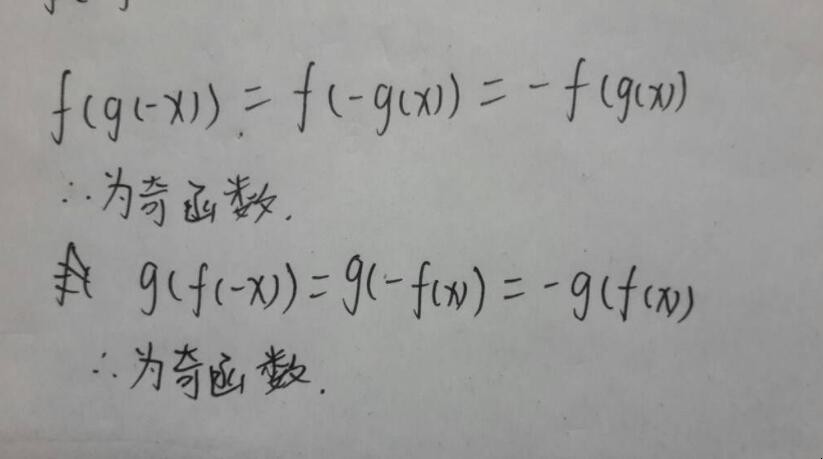 f(g(-x)) = f(-g(x)) = -f(g(x))
∴为奇函数.
g(f(-x)) = g(-f(x)) = -g(f(x)
∴为奇函数.